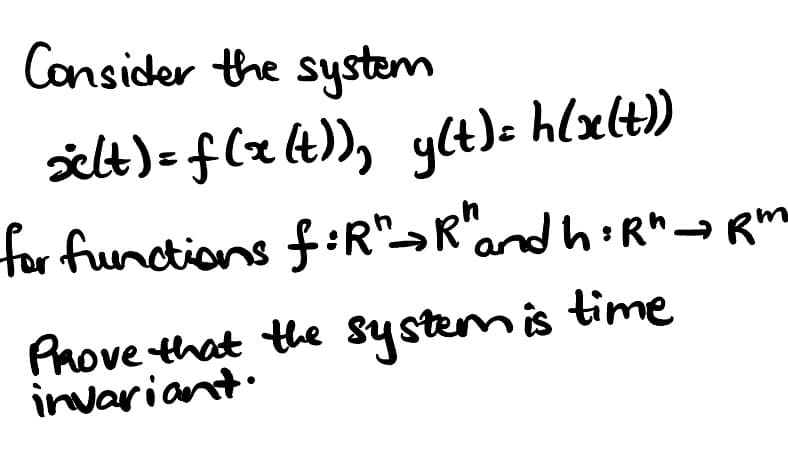 Consider the system
ẋ(t) = f(x(t)), y(t) = h(x(t))
for functions f : Rⁿ → Rⁿ and h : Rⁿ → Rᵐ
Prove that the system is time
invariant.